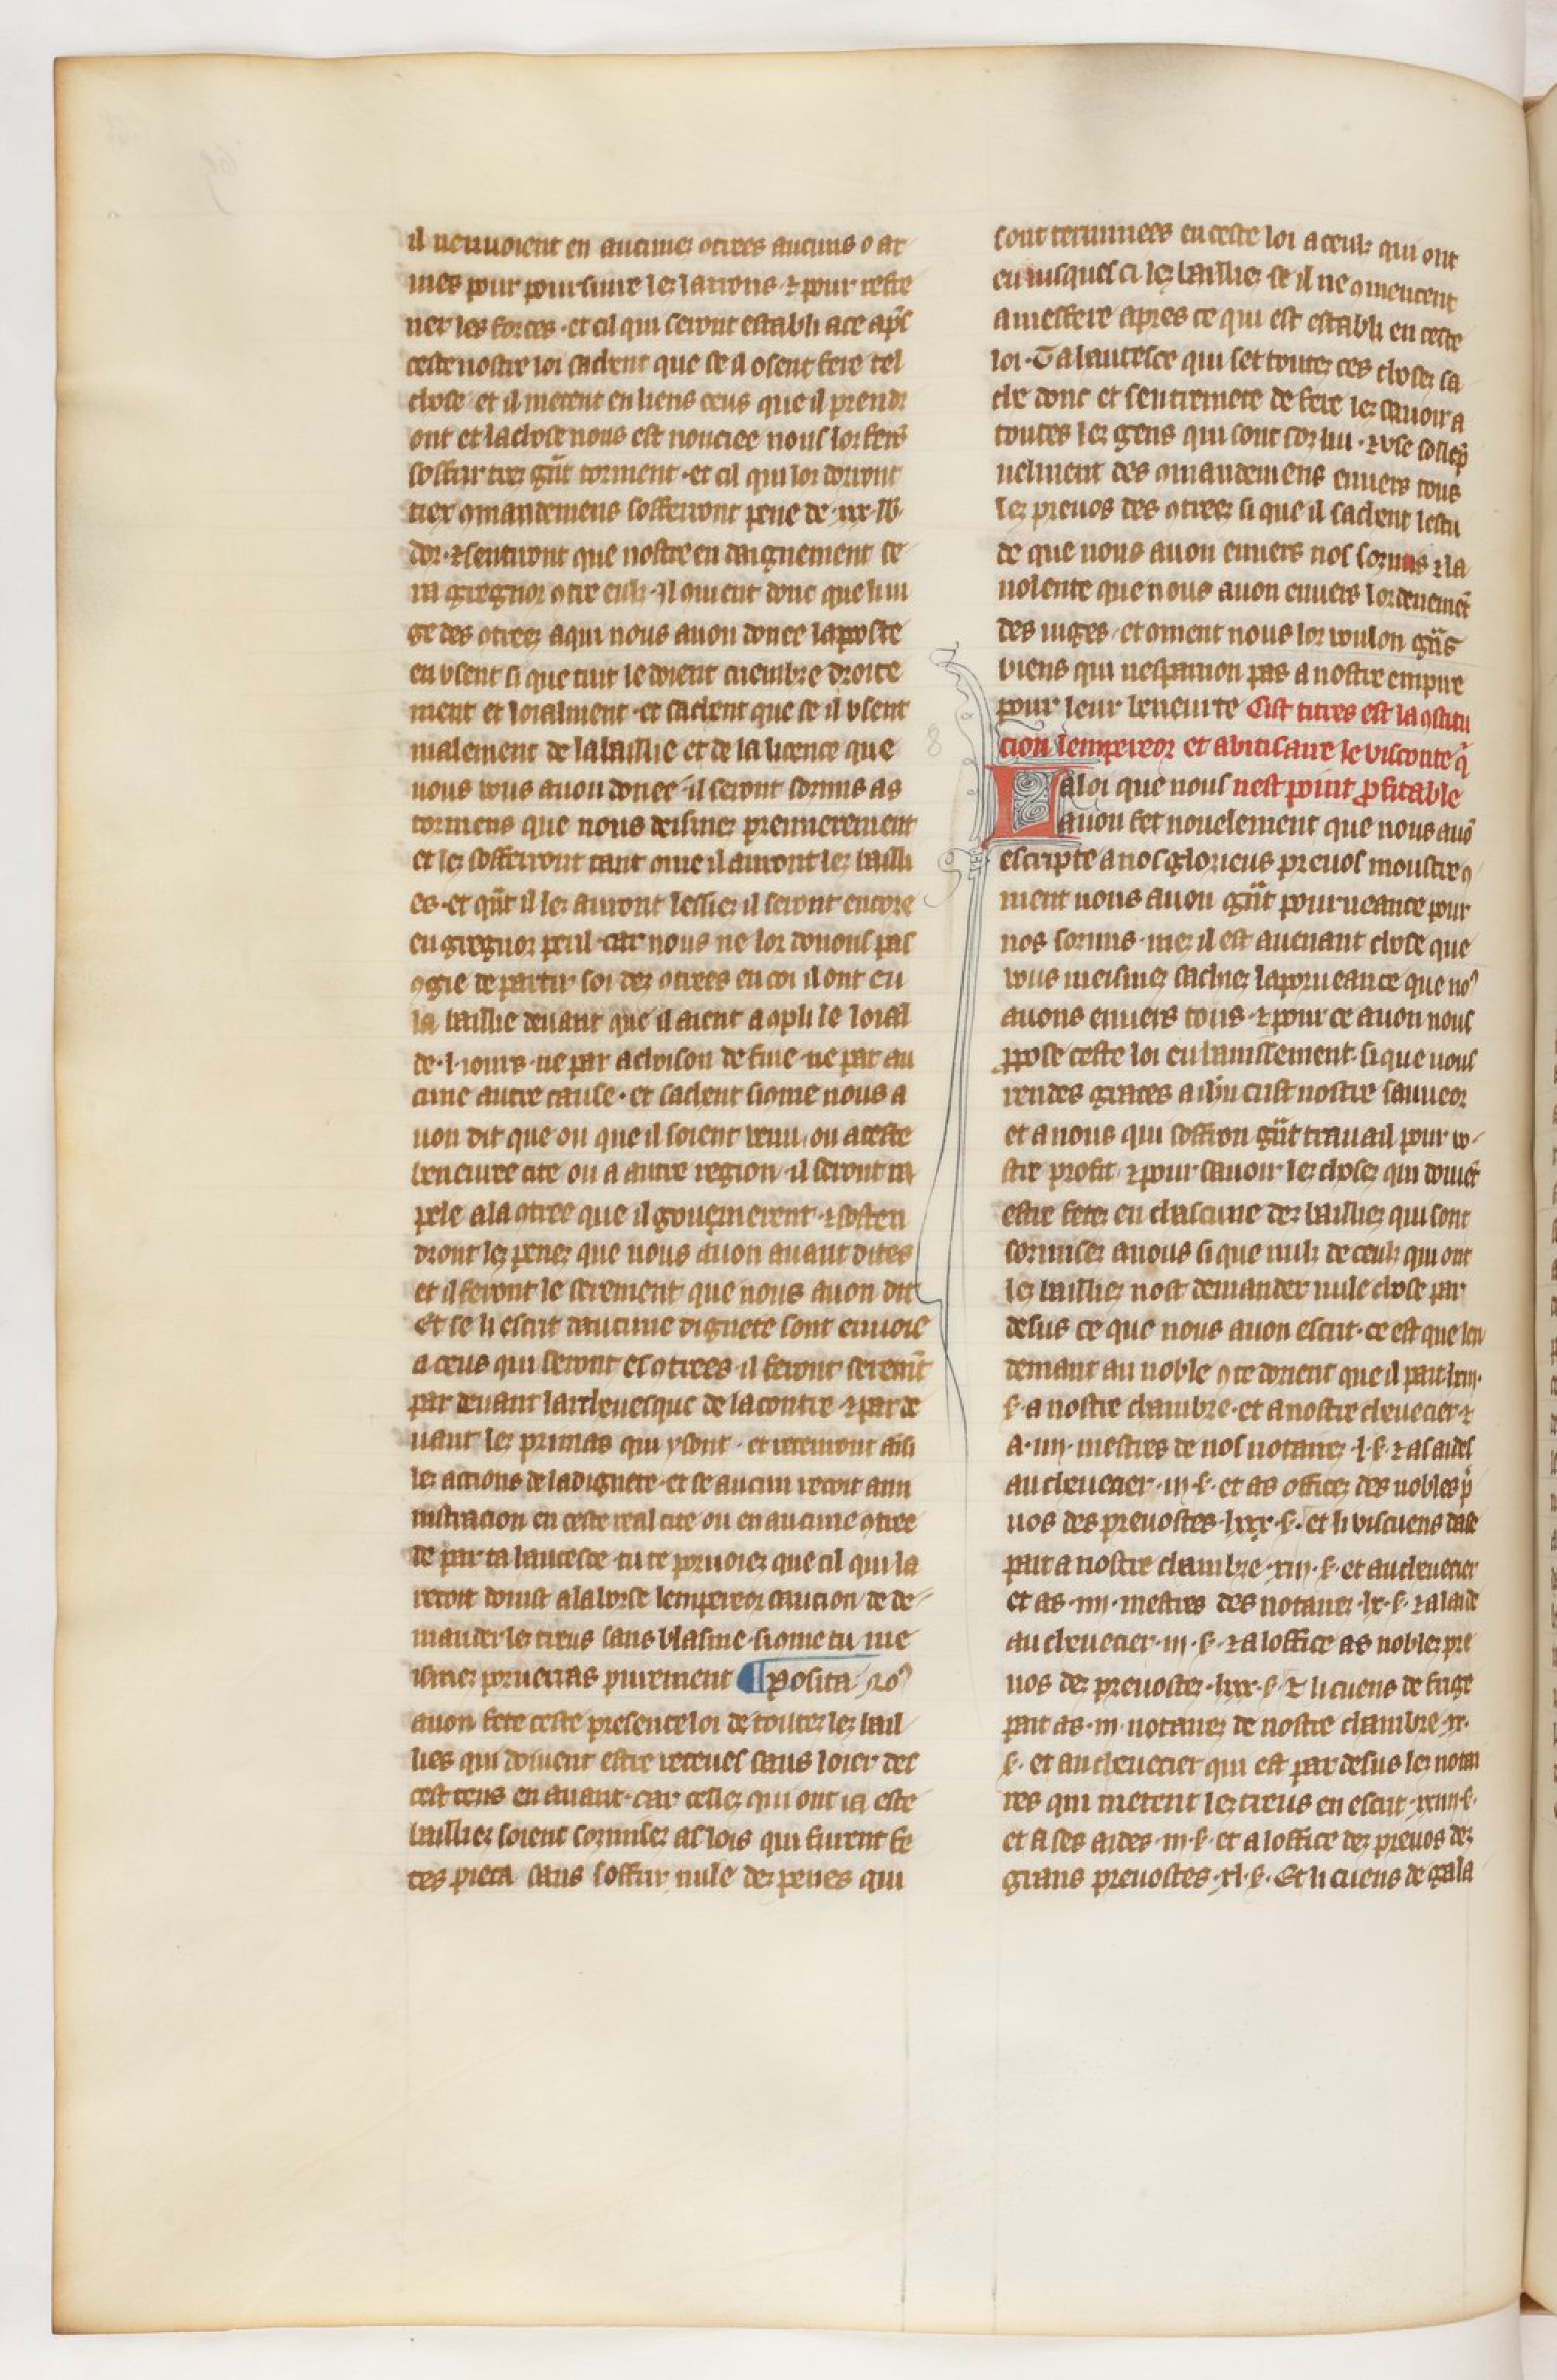 il nenuoient en aucunes ꝯtrees aucuns o ar
mes pour poursuiure les larrons ⁊ pour refre
ner les forces · et cil qui seront establi a ce apͤs
ceste nostre loi sachent que se il osent fere tel
chose et il metent en liens ceus que il prendr
ont et la chose nous est nonciee nous lor ferōs
soffrir tiex gͣnt torment · et cil qui lor dorront
tiex ꝯmandemens sofferront pene de ·xx· lb·
dor · ⁊ sentiront que nostre en daignement se
ra gregnor ꝯtre eulz · Il ꝯuient donc que li iu
ge des ꝯtrees a qui nous auon donee la poste
en vsent si que tuit le doient criembre droite
ment et loialment · et sachent que se il vsent
malement de la baillie et de la licence que
nous vous auon donee il seront sormis as
tormens que nous deismes premierement
et les sofferront tant ꝯme il auront les bailli
es · et qͣnt il les auront lessies il seront encore
en gregnor peril · car nous ne lor donons pas
ꝯgie de partir soi des ꝯtrees en coi il ont eu
la baillie deuant que il aient aꝯpli le loial
de ·l· iours · ne par achoison de fuie · ne par au
cune autre cause · et sachent si ꝯme nous a
uon dit que ou que il soient venu ou a ceste
beneuree cite ou a autre region · il seront ra
pele a la ꝯtree que il gouuernerent · ⁊ sosten
dront les penes que nous auon auant dites
et il feront le serement que nous auon dit
Et se li escrit daucune dignete sont enuoie
a ceus qui seront es ꝯtrees · il feront seremēt
par deuant larcheuesque de la contre ⁊ par de
uant les primas qui y sont · et receuront aisi
les actions de la dignete · et se aucun recoit ami
nistracion en ceste real cite ou en aucune ꝯtree
de par ta hautesce · tu te poruoies que cil qui la
recoit doinst a la borse lempereor caucion de de
mander les treus sans blasme · si ꝯme tu me
ismes porueras purement ¶ Posita no⁹
auon fete ceste presente loi de toutes les bail
lies qui doiuent estre receues sans loier des
cest tens en auant · car celles qui ont ia este
baillies soient sormises as lois qui furent fe
tes pieca sans soffrir nule des penes qui
sont terminees en ceste loi a ceulz qui ont
eu iusques ci les baillies se il ne ꝯmencent
a meffere apres ce qui est establi en ceste
loi · Ta hautesce qui set toutes ces choses sa
che donc et sentremete de fere les sauoir a
toutes les gens qui sont soz lui · ⁊ vse sollēp
nelment des ꝯmandemens enuers tous
les preuos des ꝯtrees si que il sachent lestu
de que nous auon enuers nos sormis ⁊ la
volente que nous auon enuers lordenemēt
des iuges · et ꝯment nous lor voulon gͣns
biens qui nesparnon pas a nostre empire
pour leur beneurte Cist titres est la ꝯstitu
cion lempereor et abitisaire le visconte qͥ
La loi que nous nest point ꝓfitable
auon fet nouelement que nous auō
escripte a nos glorieus preuos moustre ꝯ
ment nous auon gͣnt pourueance pour
nos sormis · mes il est auenant chose que
vous meismes sachies la porueance que no⁹
auons enuers tous · ⁊ pour ce auon nous
ꝓpose ceste loi en banissement · si que vous
rendes graces a ihū crist nostre sauueor
et a nous qui soffron gͣnt trauail pour vo
stre profit · ⁊ pour sauoir les choses qui doiuēt
estre fetes en chascune des baillies qui sont
sormises a nous si que nulz de ceulz qui ont
les baillies nost demander nule chose par
desus ce que nous auon escrit · ce est que len
demant au noble ꝯte dorient que il pait lxiij·
s· a nostre chambre · et a nostre cheuecier ⁊
a ·iiij· mestres de nos notaires ·l· s· ⁊ as aides
au cheuecier ·iij· s· et as offices des nobles p̄
uos des preuostes ·lxxx· s· et li viscuens dase
pait a nostre chambre ·xiij· s· et au cheuecier
et as ·iiij· mestres des notaires ·lx· s· ⁊ a laide
au cheuecier ·iij· s· ⁊ a loffice as nobles pre
uos des preuostes ·lxxx· s· Et li cuens de frige
pait as ·iij· notaires de nostre chambre ·x·
s· et au cheuecier qui est par desus les notai
res qui metent les treus en escrit ·xxiiij· s·
et a ses aides ·iij· s· et a loffice des preuos des
grans preuostes ·xl· s· Et li cuens de gala